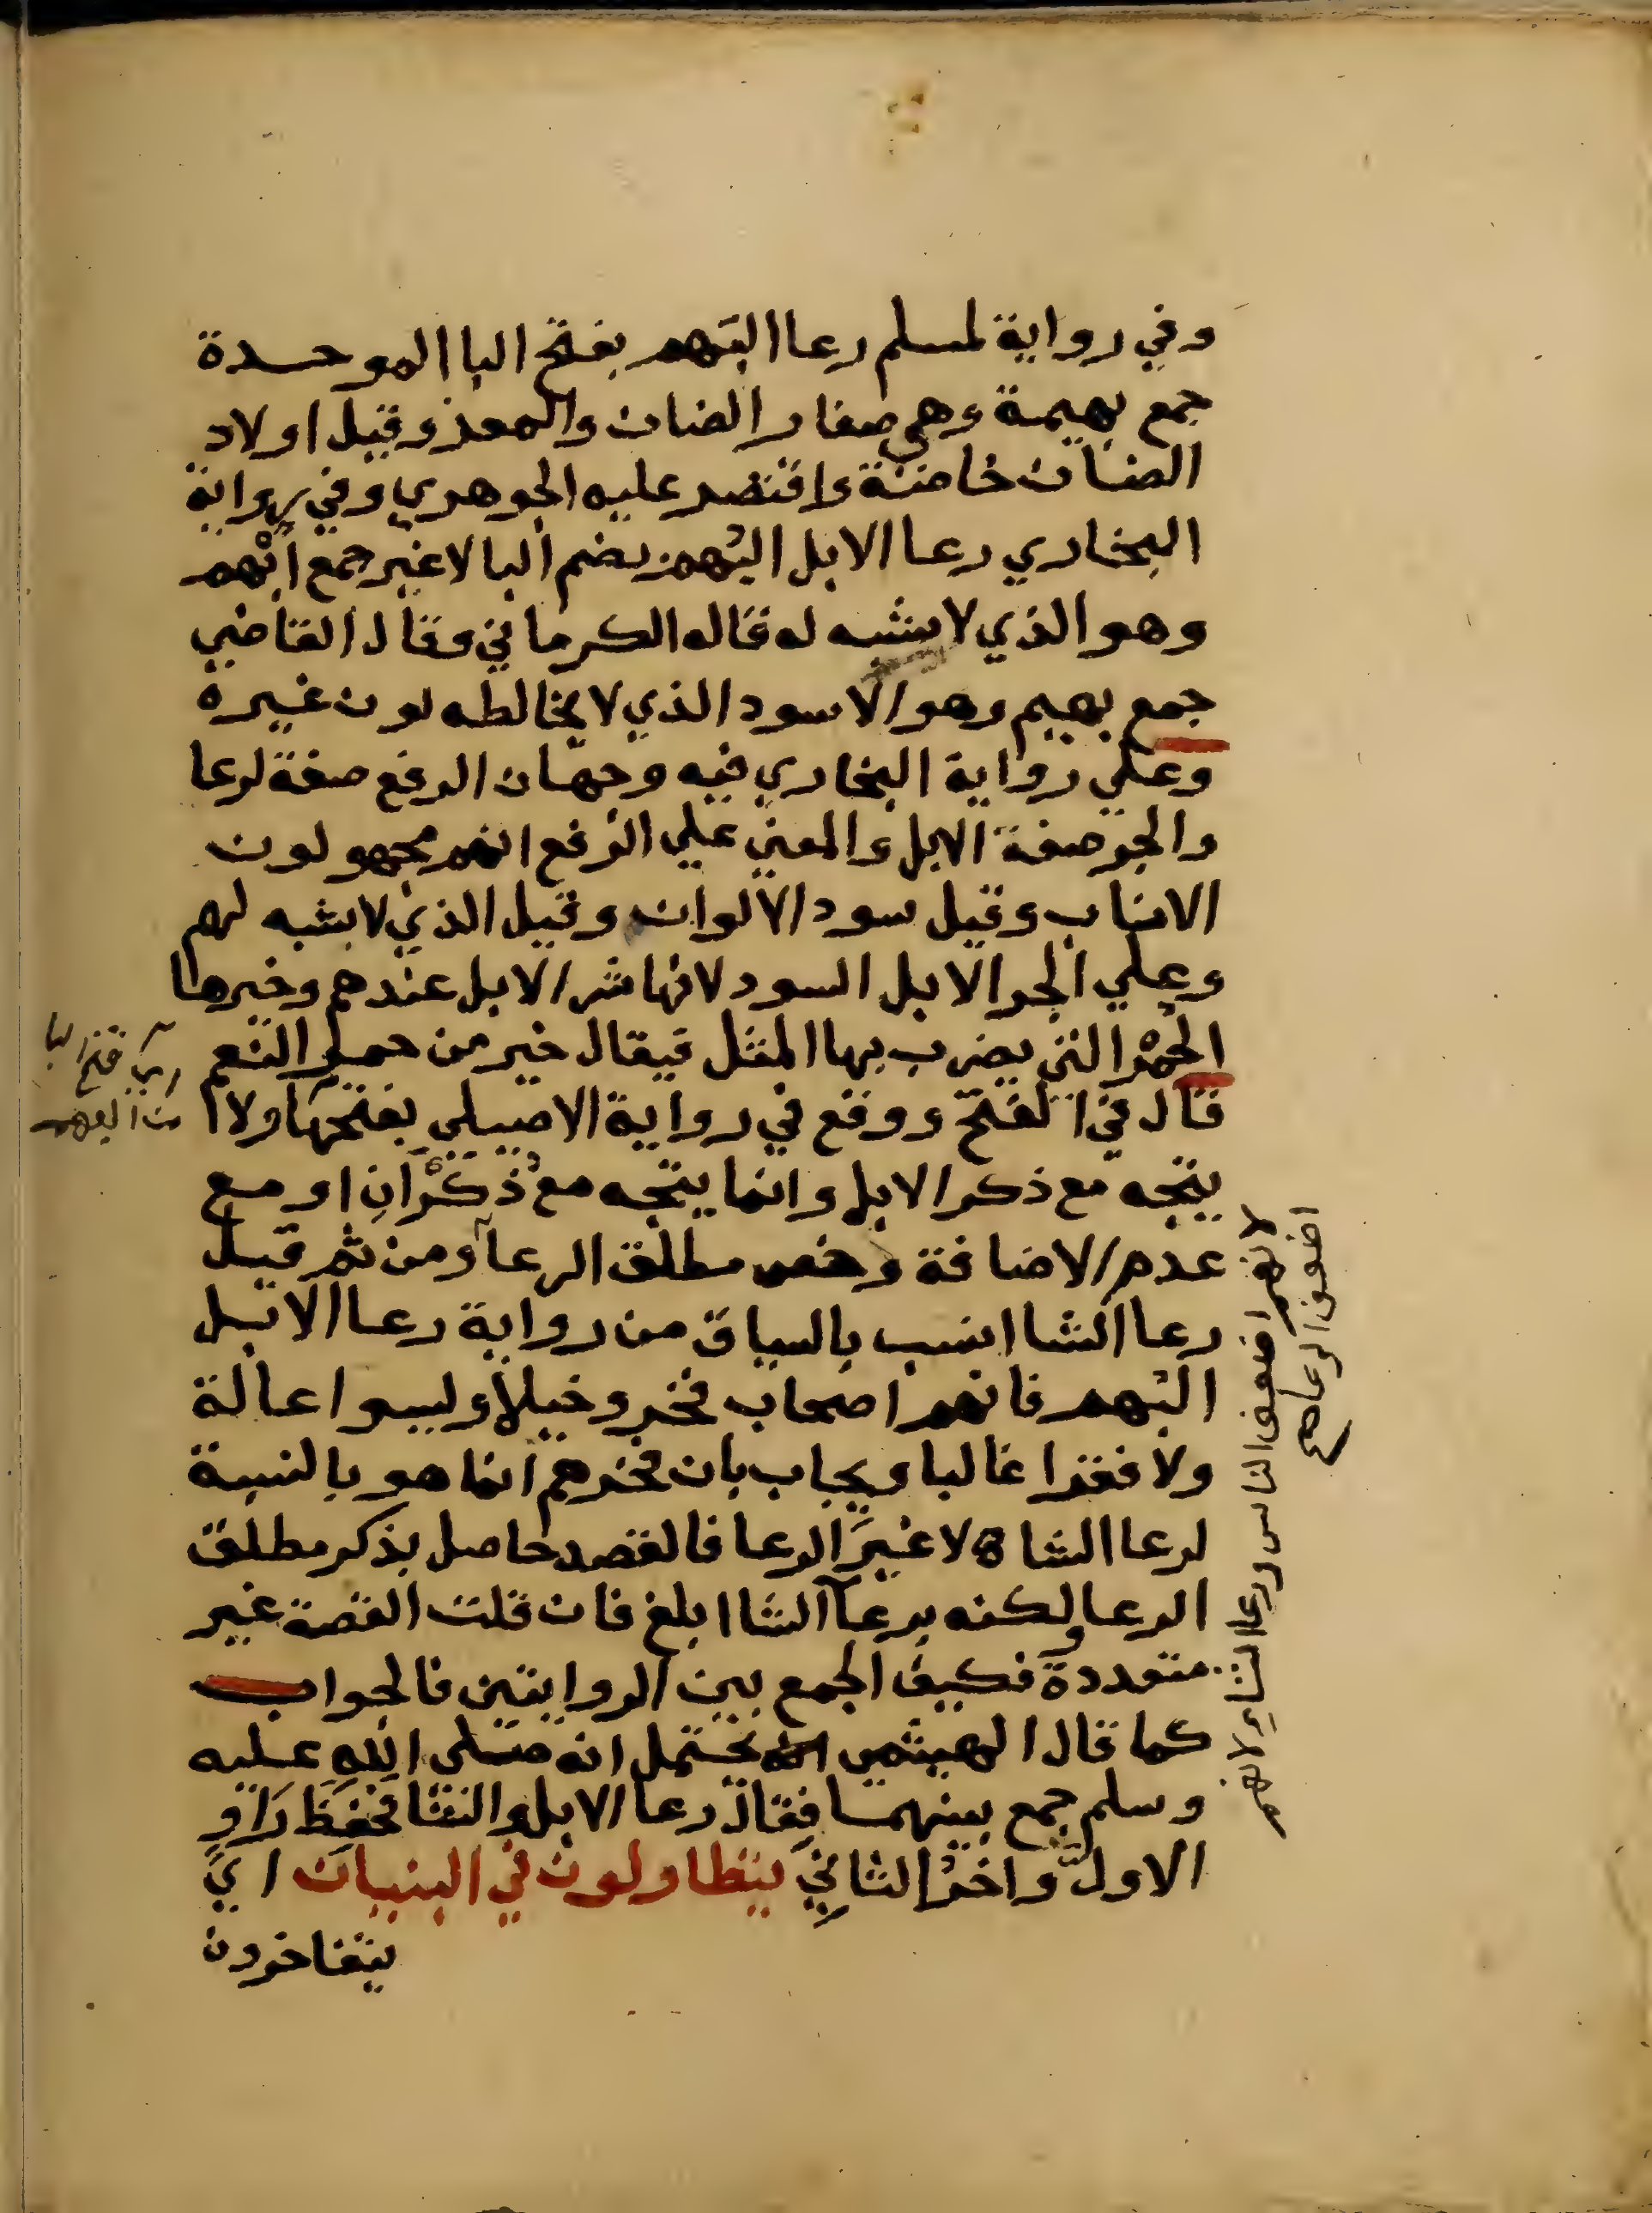 وفي رواية لمسلم رعا البَهم بفتح البا الموحدة
جمع بهيمة وهي صغار الضان والمعز وقيل اولاد
الضان خاصة واقتصر عليه الجوهري وفي رواية
البخاري رعا الابل البُهم بضم البا لا غير جمع ابْهم
وهو الذي لا يشبه له قاله الكرماني وقال القاضي
جمع بهيم وهو الاسود الذي لا يخالطه لون غيره
وعلي رواية البخاري فيه وجهان الرفع صفة لرعا
والجر صفة الابل والمعني علي الرفع انهم مجهولون
الانساب وقيل سود الالوان وقيل الذي لا يشبه لهم
وعلي الجر الابل السود لانها شر الابل عندهم وخيرها
الحُمْر التي يضرب بها المثل فيقال خير من حمر النعم
قال في الفتح ووقع في رواية الاصيلي بفتحها ولا
يتجه مع ذكر الابل وانما يتجه مع ذُكْرَانِ او مع
عدم الاضافة وخص مطلق الرعآ ومن ثم قيل
رعا الشا انسب بالسياق من رواية رعا الابل
البُهم فانهم اصحاب فخر وخيلآ وليسوا عالة
ولا فقرا غالبا ويجاب بان فخرهم انما هو بالنسبة
لرعا الشاة لا غيرَ الرعا فالقصد حاصل بذكر مطلق
الرعا ولكنه برعآ الشا ابلغ فان قلت القصة غير
متعددة فكيف الجمع بين الروايتين فالجواب
كما قال الهيثمي يحتمل انه صلى الله عليه
وسلم جمع بينهما فقال رعا الابل والشا فحفظ رَاوٍ
الاول واخرُ الثاني يتطاولون في البنيان اي
يتفاخرون
اي فتح البا
من البهم
لانهم اضعف الناس ورعا الشا لانهم
اضعف الرعا صح